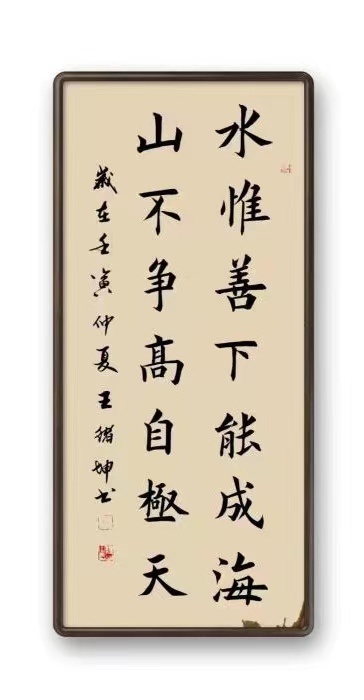 水惟善下能成海
山不争高自極天
歲在壬寅仲夏王緒坤书